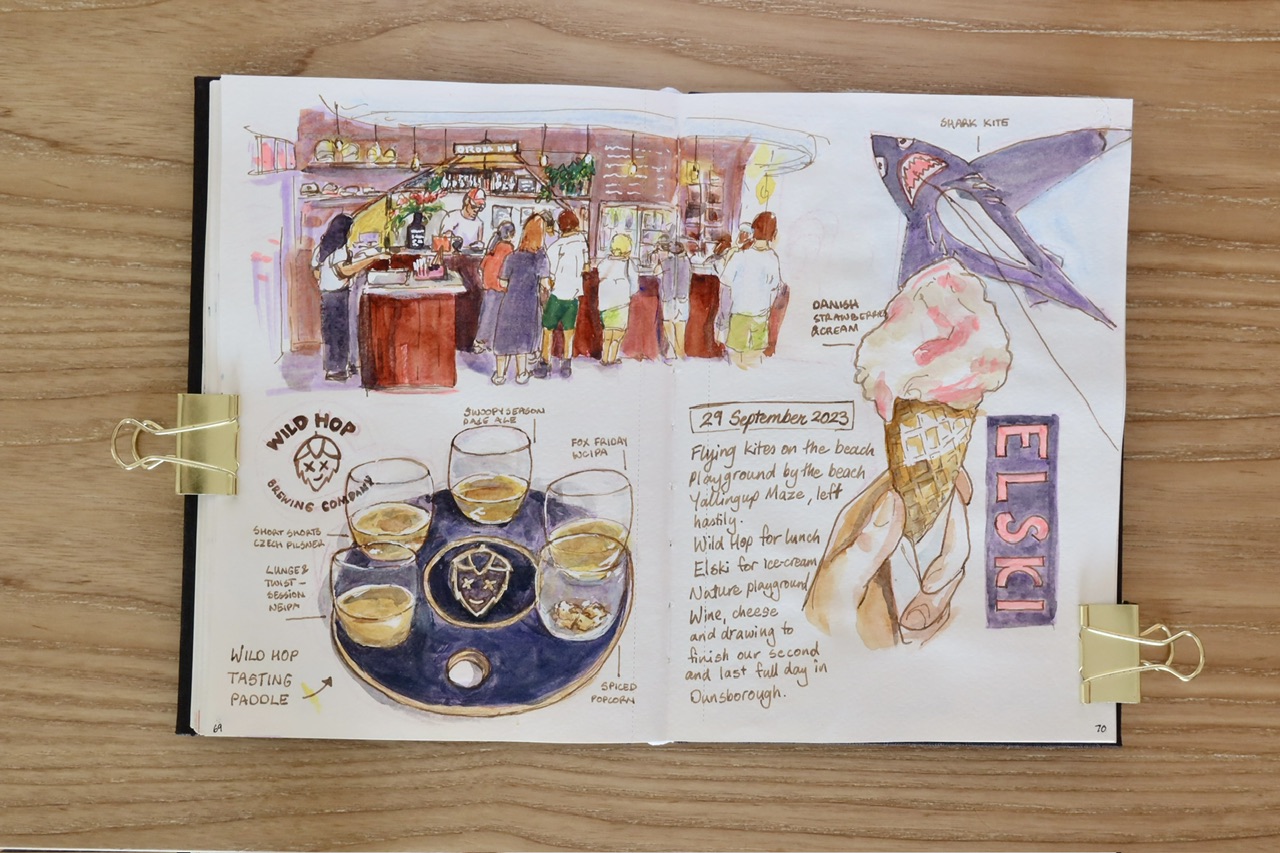 ORDER HERE
WILD HOP
BREWING COMPANY
SWOOPY SEASON
PALE ALE
FOX FRIDAY
WCIPA
SHORT SHORTS
CZECH PILSNER
LUNGE &
TWIST –
SESSION
NEIPA
WILD HOP
TASTING
PADDLE
SPICED
POPCORN
69
SHARK KITE
DANISH
STRAWBERRIES
& CREAM
29 September 2023
Flying kites on the beach
Playground by the beach
Yallingup Maze, left
hastily.
Wild Hop for lunch
Elski for ice-cream
Nature playground
Wine, cheese
and drawing to
finish our second
and last full day in
Dunsborough.
ELSKI
70